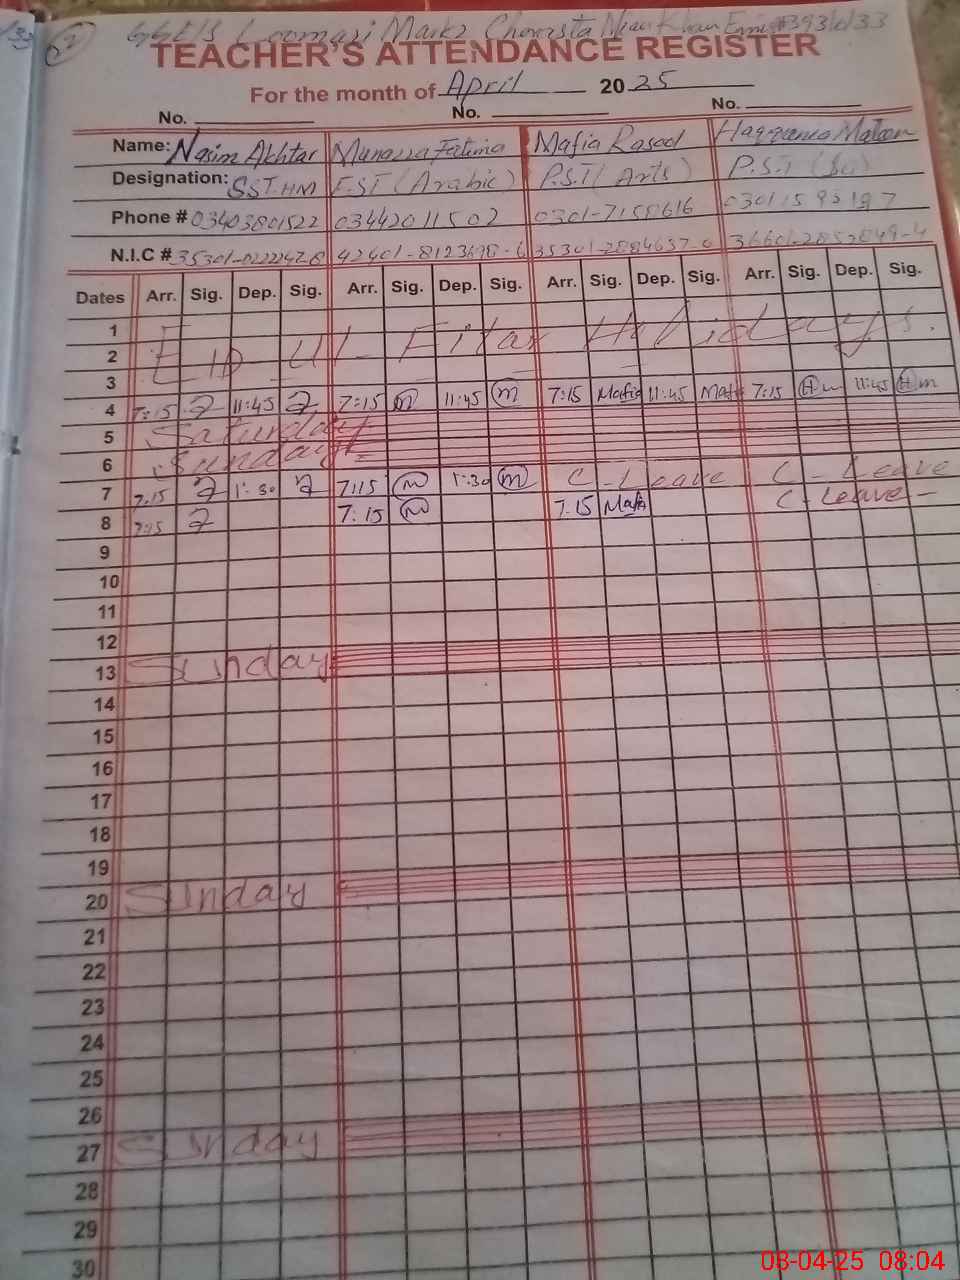 GGE/S Loomari Markz Chowrsta Mian Khan Emis#393/0/33
TEACHER'S ATTENDANCE REGISTER
For the month of April 2025
No. No. No.
Name: Nasim Akhtar Munazza Fatima Mafia Rasool Mateen
Designation: SST.HM EST (Arabic) P.S.T (Arts) P.S.T
Phone # 03403801522 03442011502 0301-7158616
N.I.C #
Dates Arr. Sig. Dep. Sig. Arr. Sig. Dep. Sig. Arr. Sig. Dep. Sig. Arr. Sig. Dep. Sig.
1 Eid_Ul_Fitar Holidays.
2
3
4 7:15 11:45 7:15 m 11:45 m 7:15 Mafia 11:45 Mafia 7:15 Hm 11:45 Hm
5 Saturday
6 Sunday
7 7:15 1:30 7:15 m 1:30 m C-Leave C-Leave
8 7:15 7:15 m 7:15 Mafia C-Leave-
9
10
11
12
13 Sunday
14
15
16
17
18
19
20 Sunday
21
22
23
24
25
26
27 Sunday
28
29
30
08-04-25 08:04